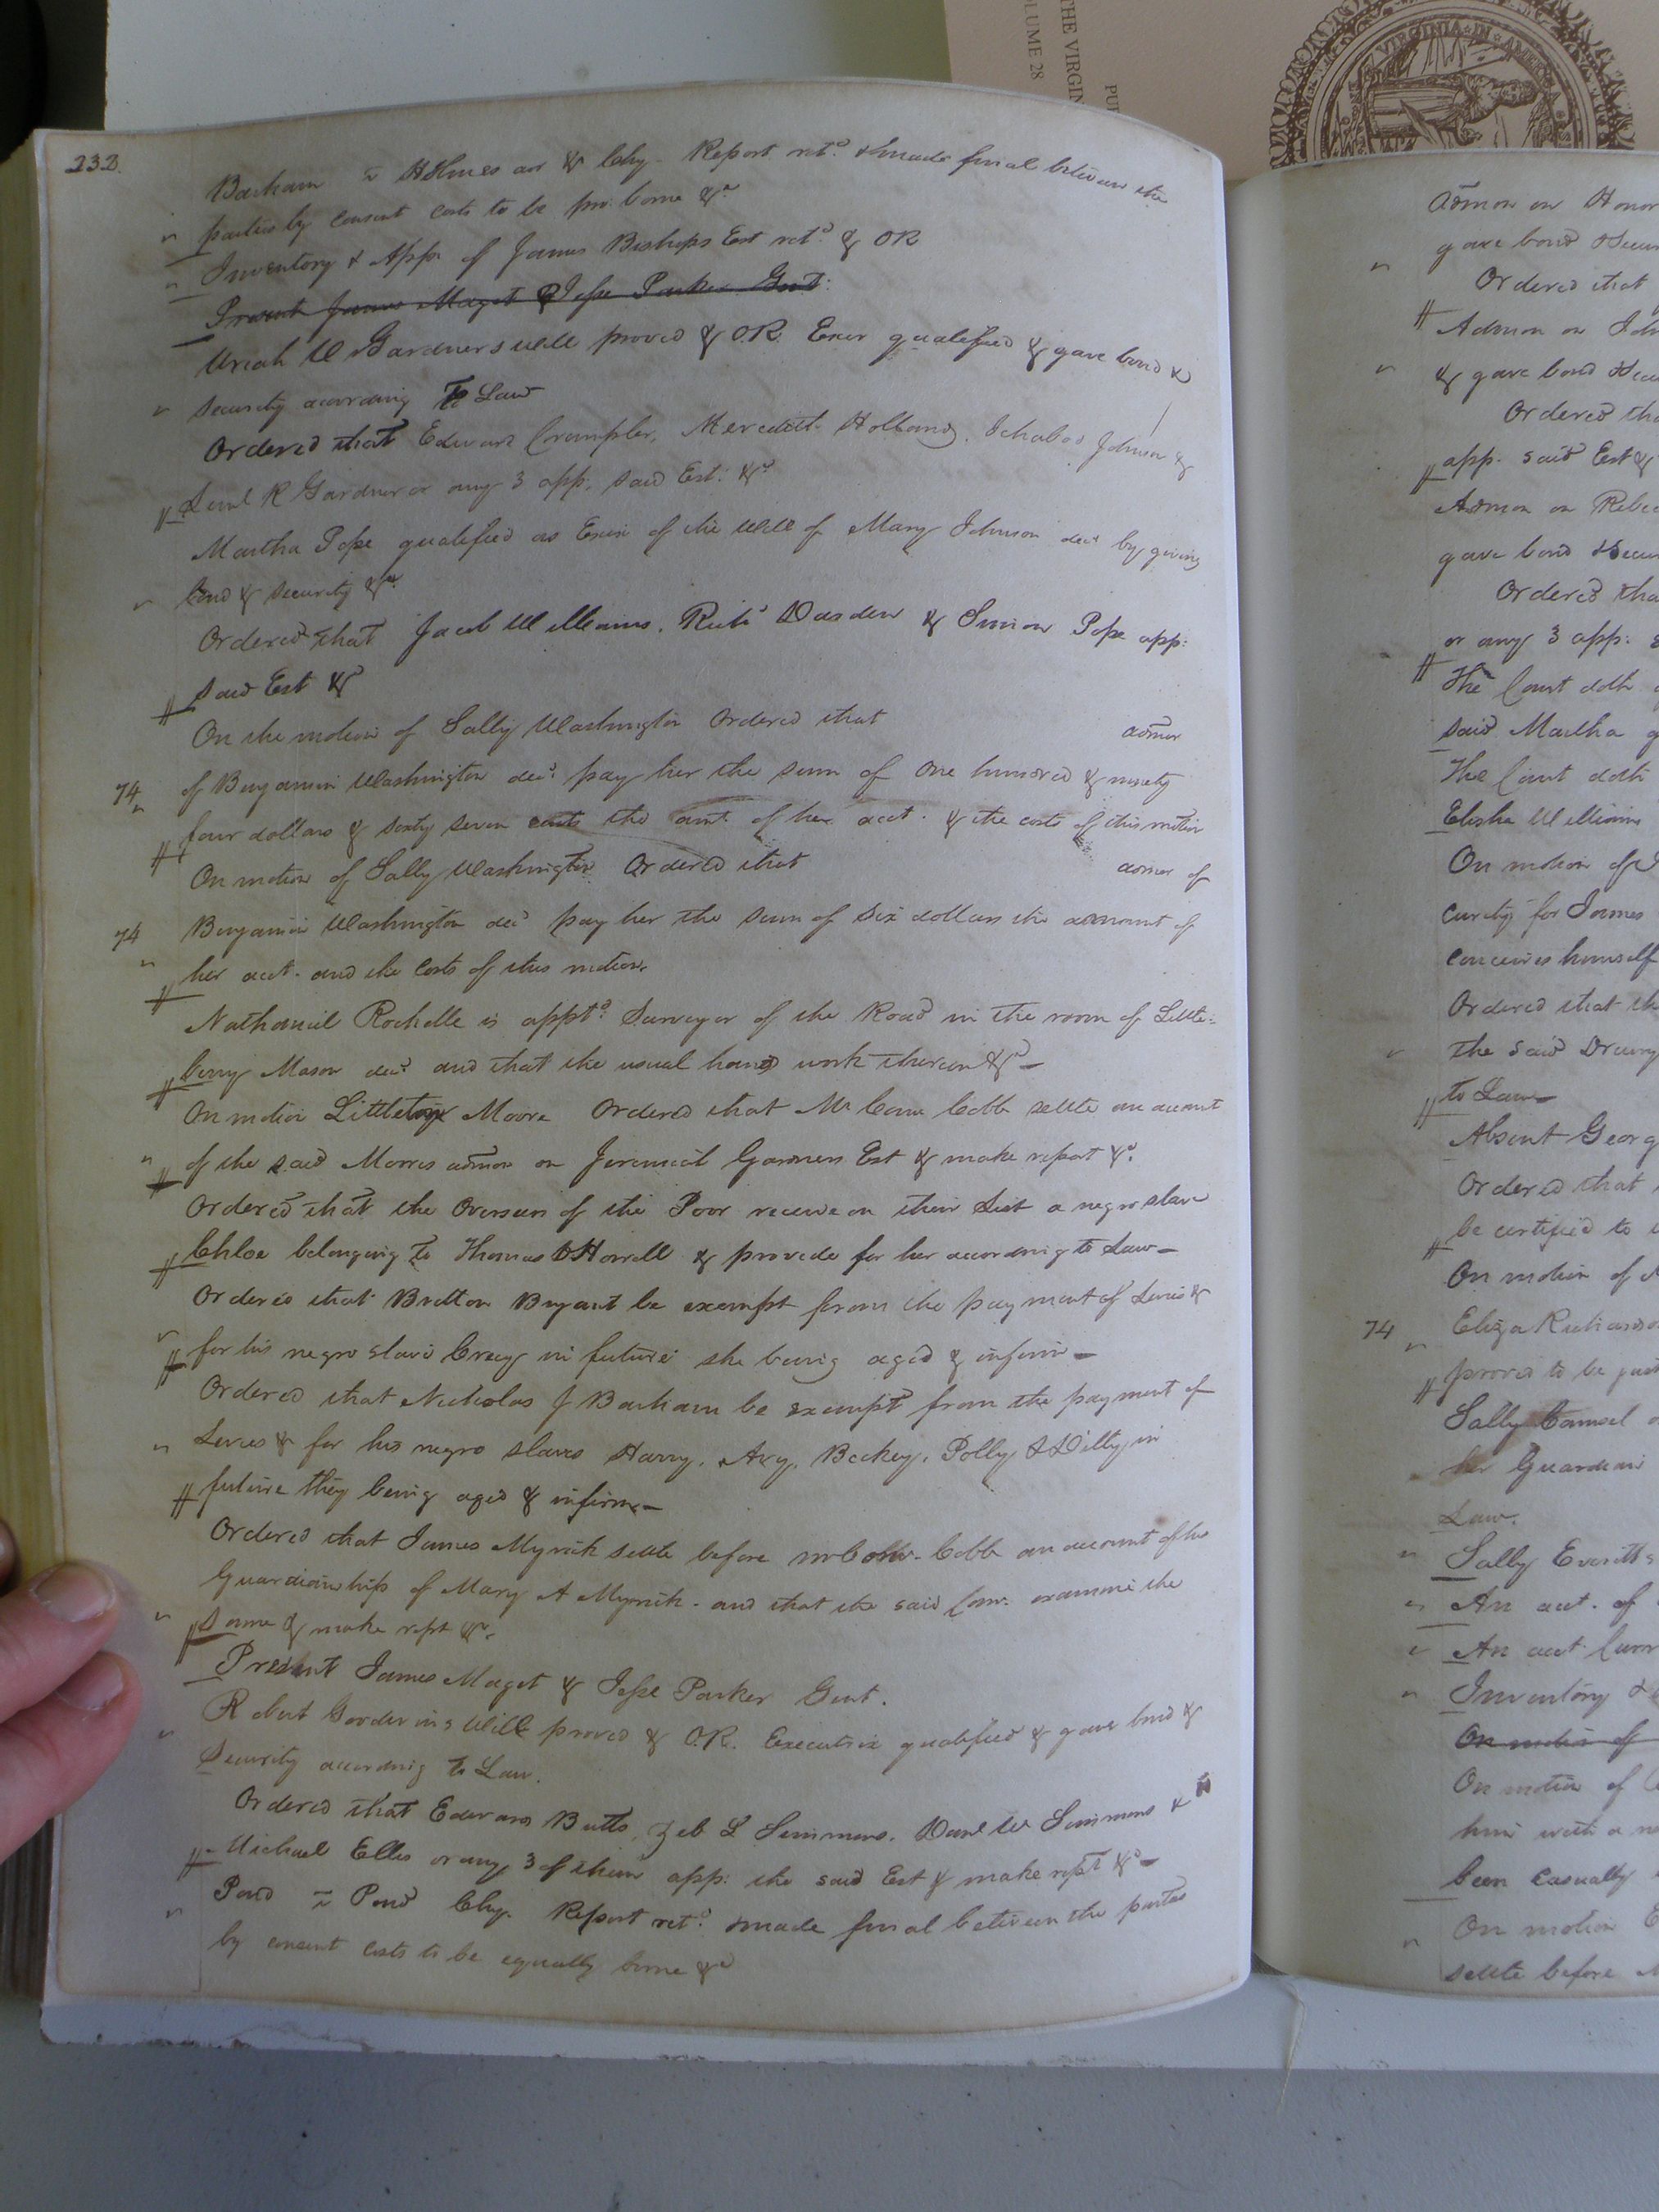 232.
Barham vs Holmes adr & Chy. Report retd. & made final between the
parties by consent costs to be pr. borne &c
Inventory & Appr of James Bishops Est retd. & OR
Present James Maget & Jesse Parker Gent:
Uriah W Gardners will proved & O.R. Exer qualified & gave bond &
security according To Law
Ordered that Edward Crumpler, Meredith Holland, Ichabod Johnson &
Seml R Gardner or any 3 app. said Est: &c
Martha Pope qualified as Exrix of the Will of Mary Johnson decd by giving
bond & security &c.
Ordered that Jacob Williams, Richd Darden & Simon Pope app:
said Est &
On the motion of Sally Washington Ordered that admor
74 of Benjamin Washington decd. pay her the sum of one hundred & ninety
four dollars & sixty seven cents the amt. of her acct. & the costs of this motion
On motion of Sally Washington Ordered that admor of
74 Benjamin Washington decd pay her the sum of six dollars the amount of
her acct. and the costs of this motion.
Nathaniel Rochelle is apptd. Surveyor of the Road in the room of Little=
berry Mason decd. and that the usual hands work thereon &c
On motion Littleton Moore Ordered that Mr Com Cobb settle an account
of the said Morris admon on Jeremiah Garners Est & make report &c.
Ordered that the Overseers of the Poor receive on their List a negro slave
Chloe belonging To Thomas D Harrell & provide for her according to Law
Ordered that Britton Bryant be exempt from the payment of Levies &
for his negro slave Creacy in future she being aged & infirm
Ordered that Nicholas J Barham be exempt from the payment of
Levies & for his negro slaves Harry, Avy, Beckey, Polly & Dilly in
future they being aged & infirm
Ordered that James Myrick settle before Mr Com. Cobb an account of his
Guardianship of Mary A Myrick. and that the said Com. examine the
same & make rept &c.
Present James Maget & Jesse Parker Gent.
Robert Goodwins Will proved & O.R. Executrix qualified & gave bond &
Security according to Law.
Ordered that Edward Butts, Zeb L Simmons, Danl W Simmons &
Michael Ellis or any 3 of them app: the said Est & make rept &c
Pond vs Pond Chy. Report retd. & made final between the parties
by consent costs to be equally borne &c
THE VIRGIN
VOLUME 28
PU
VIRGINIA IN
admon on Honor
gave bond & Secur
Ordered that
Admon on Joh
& gave bond & Secu
Ordered tha
app. said Est &
Admon on Rebec
gave bond & Secur
Ordered tha
or any 3 app.
The Court doth
said Martha g
The Court doth
Elisha Williams
On motion of
curity for James
conceives himself
Ordered that th
the said Drewry
to Law
Absent Georg
Ordered that
be certified to
On motion of
74 Eliza Richardso
proved to be just
Sally
her Guardian
Law.
Sally Everitts
An acct. of
An acct Curr
Inventory &
On motion of
On motion of
him with a
been casually
On motion E
settle before